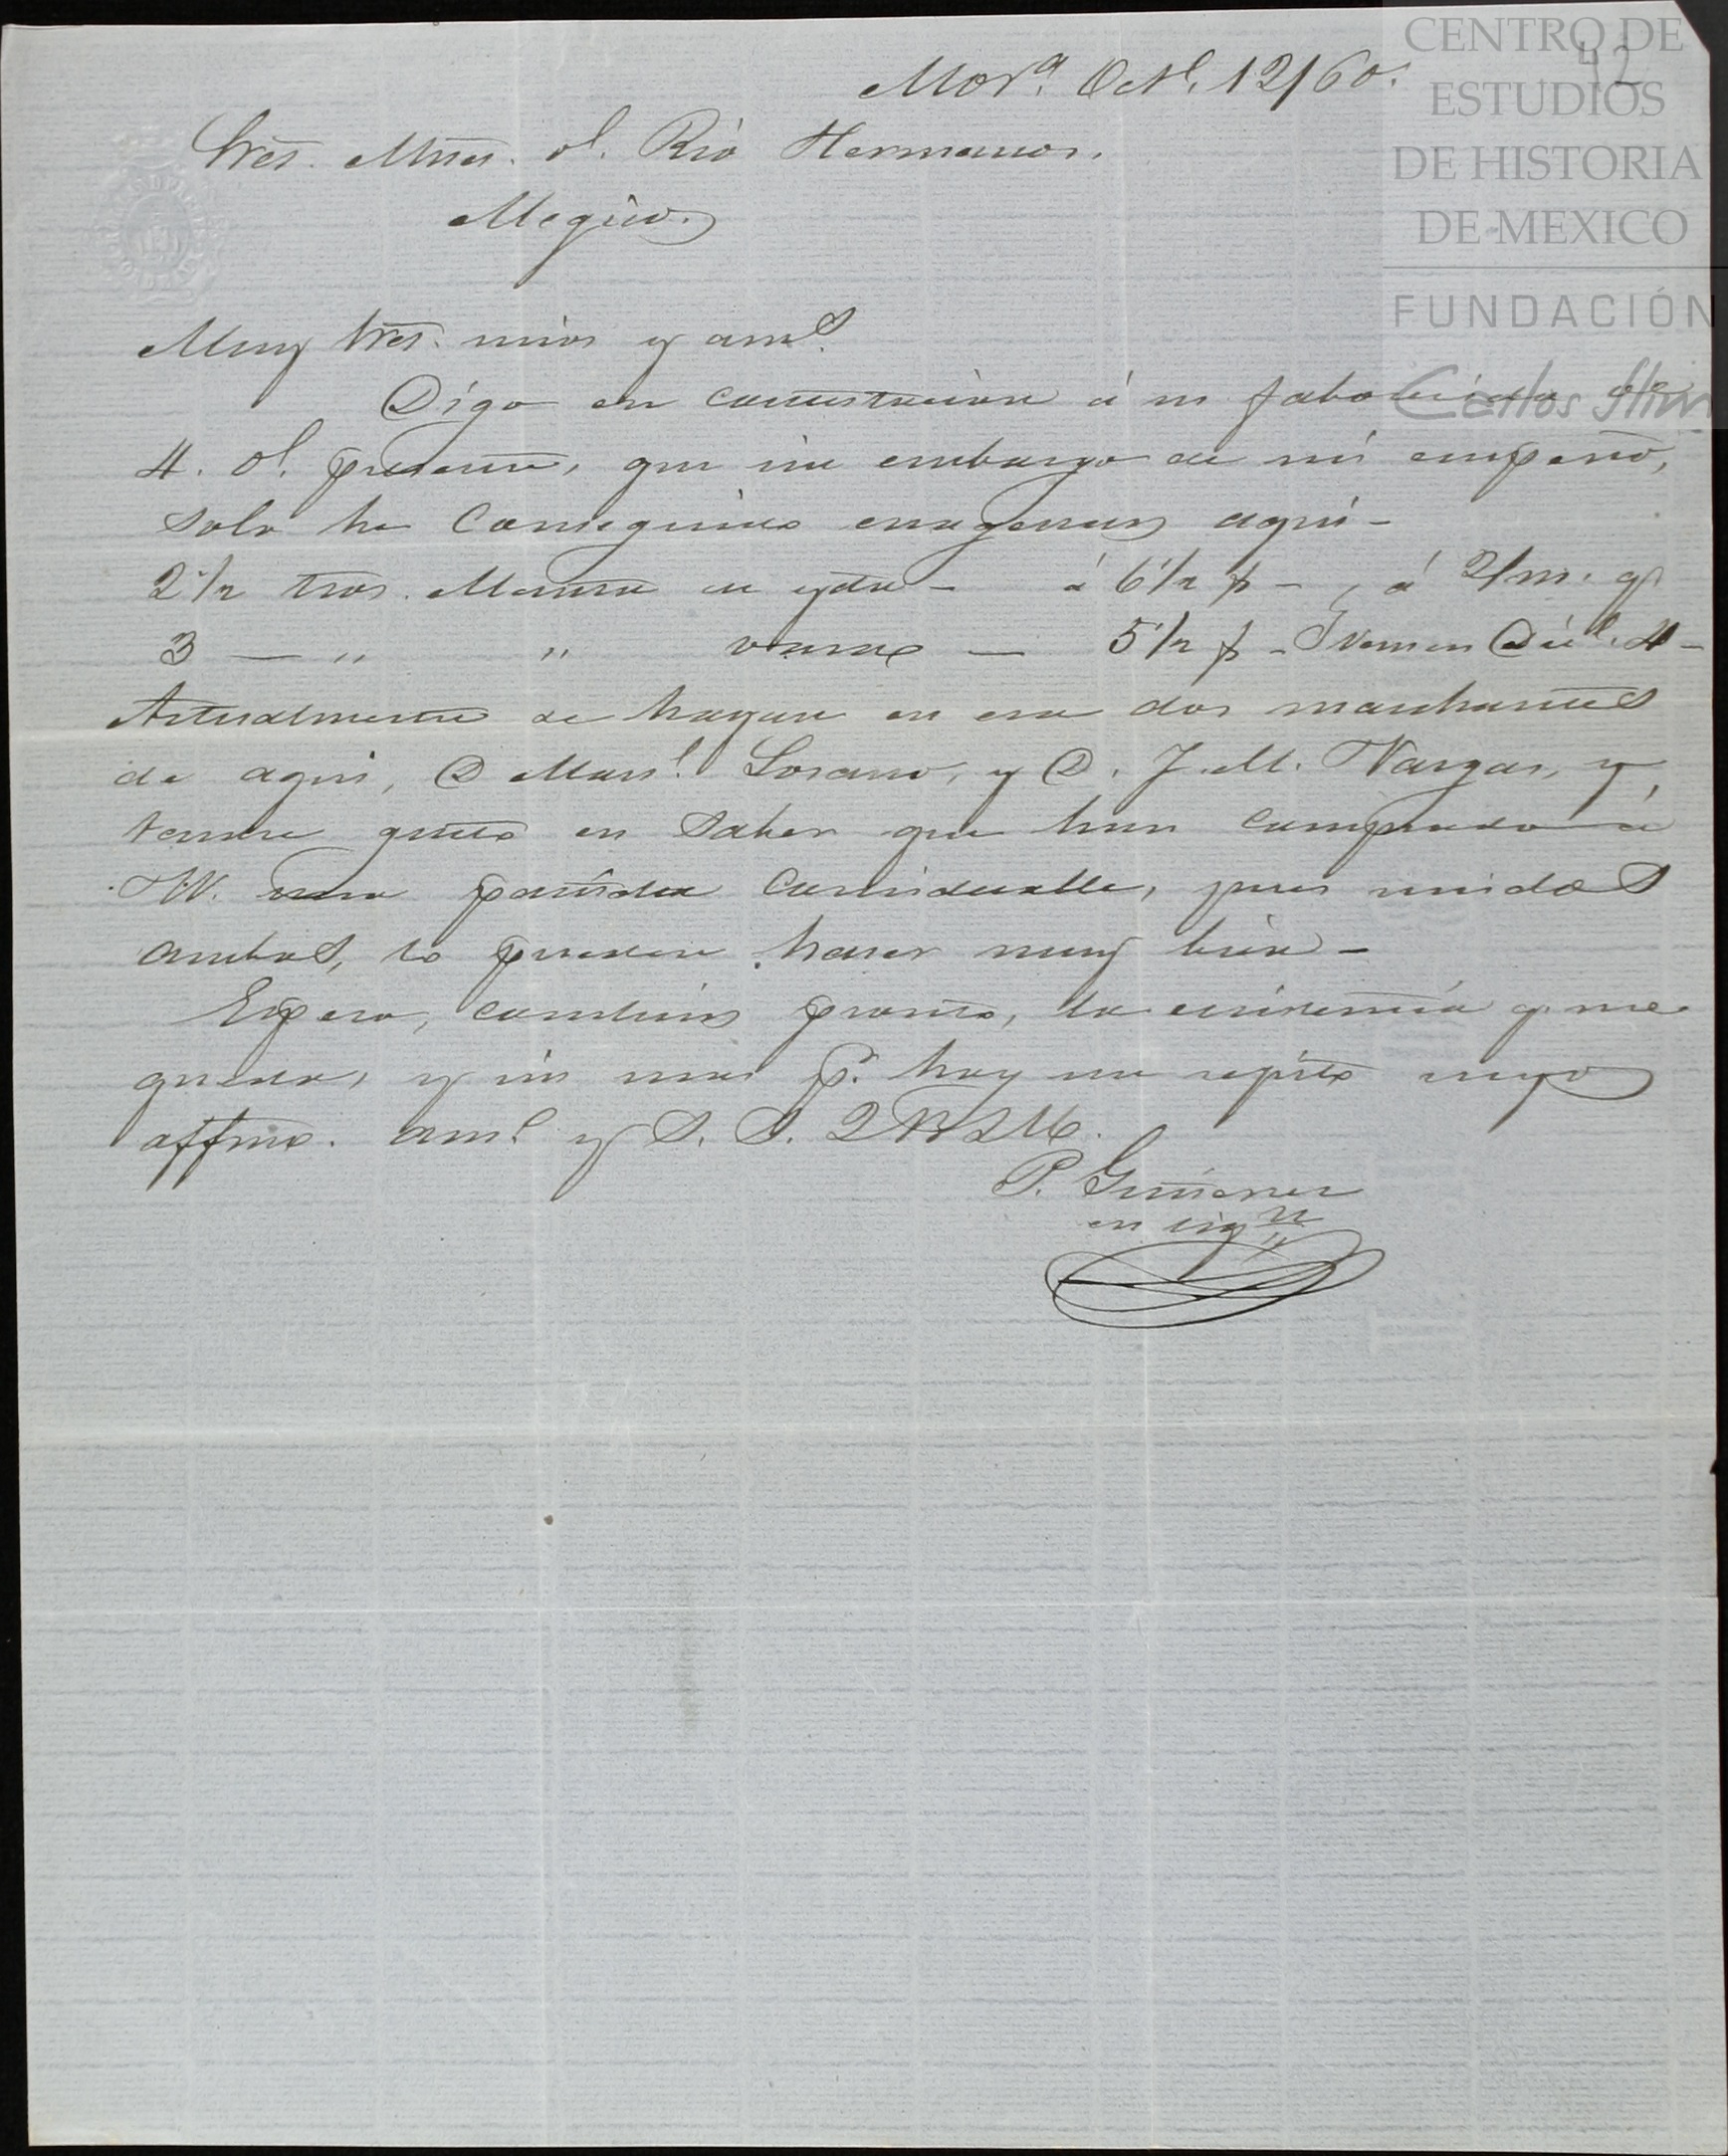 CENTRO DE
ESTUDIOS
DE HISTORIA
DE MEXICO
FUNDACIÓN
Carlos Slim
42
Mora. Octe. 12/60.
Sres. Mtnes. dl. Rio Hermanos.
Megico.
Muy Sres. mios y ams.
Digo en contestacion á su faborecida de
4. dl. presente, que sin embargo de mi empeño,
solo he conseguido enagenar aqui -
2 1/2 tros. Manta de - á 6 1/2 p - , á 2/m. qe
3 — " " — 5 1/2 p - Vencen Dice. 4 -
Actualmente se hayan en esa dos marchantes
de aqui, D Manl. Losano, y D. J. M. Vargas, y
tendre gusto en saber que han comprado á
VV. una partida considerable, pues unidos
ambos, lo pueden haser muy bien -
Espero, concluir pronto, la existencia q. me
queda, y sin mas p. hoy me repito suyo
affmo. amo y S. S. Q B S M.
P. Gimenez